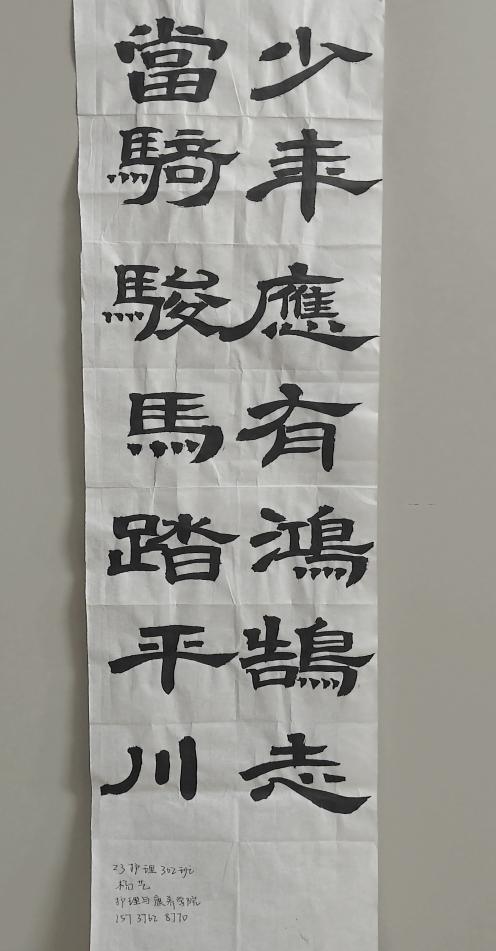 少年應有鴻鵠志
當騎駿馬踏平川
23护理302班
护理与康养学院